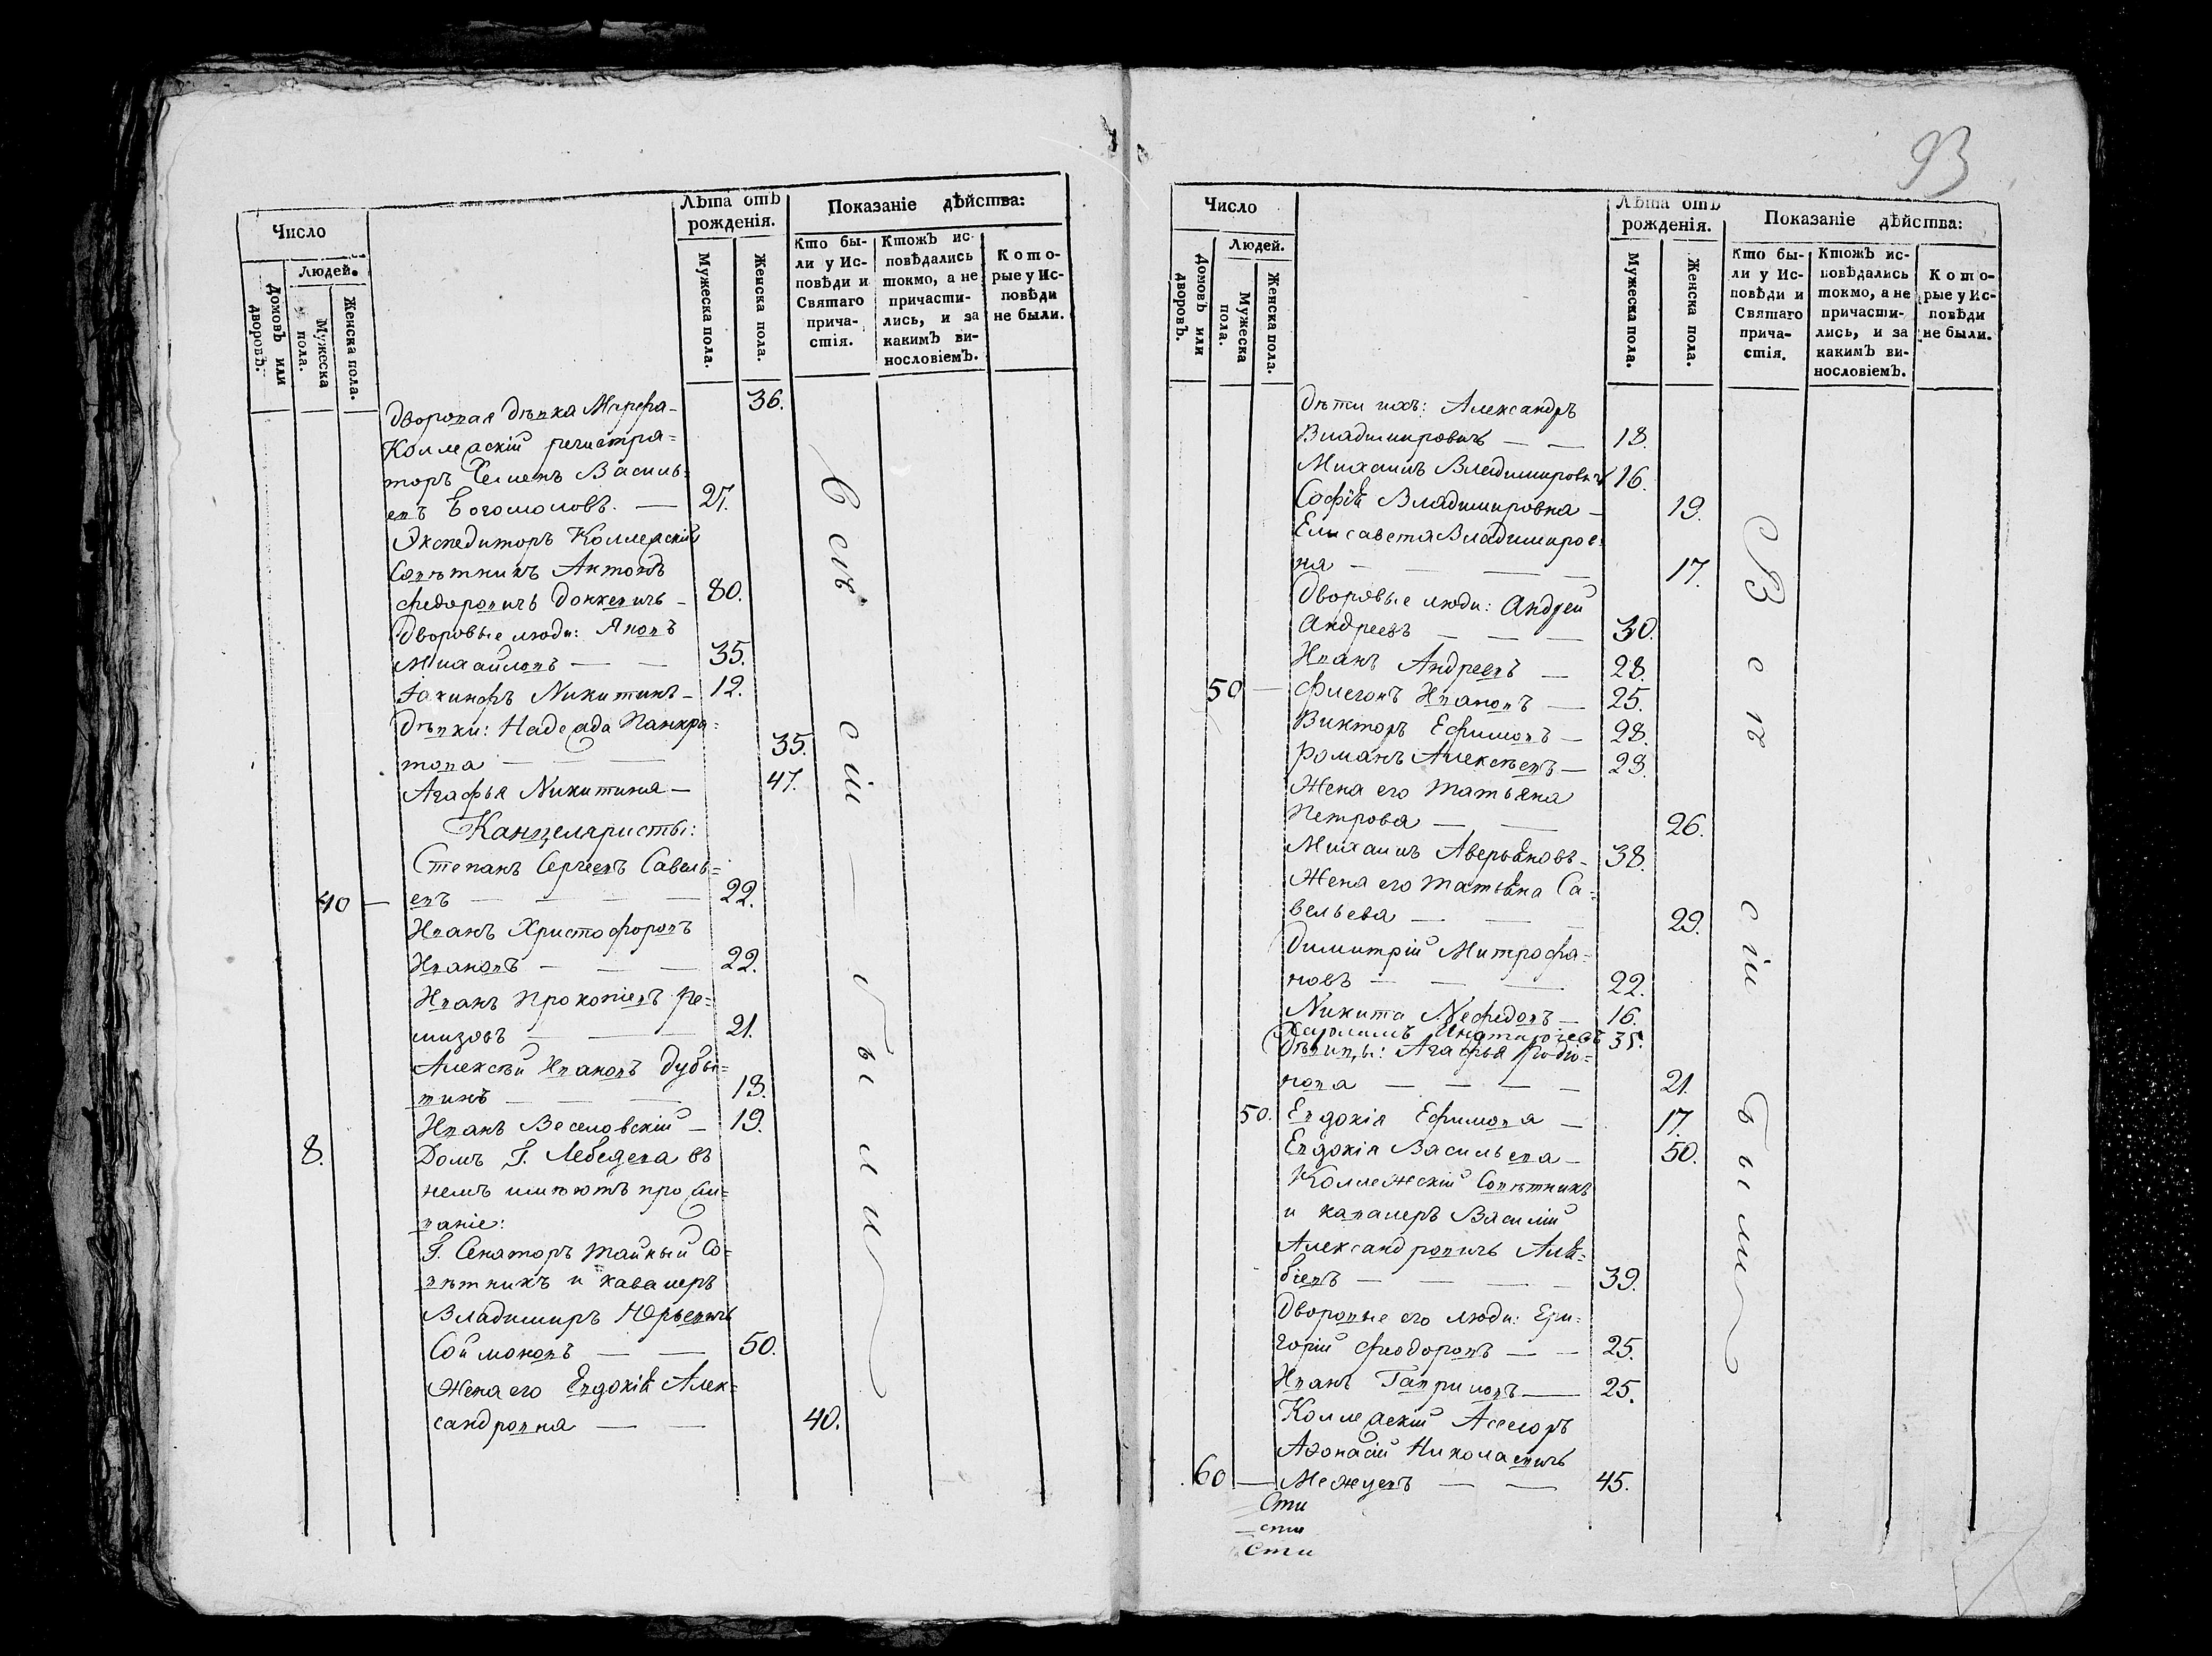 Число
Людей.
Домовъ или дворовъ.
Мужеска пола.
Женска пола.
Лѣта отъ рожденія.
Мужеска пола.
Женска пола.
Показаніе дѣйства:
Кто бы-
ли у Ис-
повѣди и
Святаго
прича-
стія.
Ктожъ ис-
повѣдались
токмо, а не
причасти-
лись, и за
какимъ ви-
нословіемъ.
Кото-
рые у Ис-
повѣди
не были.
Дворовая дѣвка Марфа - 36.
Коллежскій регистра=
торъ Семенъ Василь=
евъ Богомоловъ. — 27.
Экспедиторъ Коллежскій
Совѣтникъ Антонъ
Федоровичъ - 80.
Дворовые люди: Яковъ
Михайловъ — — 35.
Іакинфъ Никитинъ - 12.
Дѣвки: Надежда Панкра=
това — — — 35.
Агафья Никитина — 47.
Канцеляристы:
Степанъ Сергеевъ Савель=
40 — евъ — — — — 22.
Иванъ Христофоровъ
Ивановъ — — — 22.
Иванъ Прокопіевъ Ре=
мизовъ — — 21.
Алексѣй Ивановъ Дубы=
тинъ — — — 18.
Иванъ Веселовскій — 19.
8. Домъ Г. Лебедева въ
немъ имѣютъ прожи=
ваніе:
Г. Сенаторъ тайный Со=
вѣтникъ и кавалеръ
Владимиръ Юрьевичъ
Соймоновъ — — 50.
Жена его Евдокія Алек=
сандровна — — 40.
Всѣ сіи — были
93
Число
Людей.
Домовъ или дворовъ.
Мужеска пола.
Женска пола.
Лѣта отъ рожденія.
Мужеска пола.
Женска пола.
Показаніе дѣйства:
Кто бы-
ли у Ис-
повѣди и
Святаго
прича-
стія.
Ктожъ ис-
повѣдались
токмо, а не
причасти-
лись, и за
какимъ ви-
нословіемъ.
Кото-
рые у Ис-
повѣди
не были.
Дѣти ихъ: Александръ
Владимировичъ — — 18.
Михаилъ Владимировичъ 16.
Софія Владимировна — 19.
Елисавета Владимиров=
на — — — 17.
Дворовые люди: Андрей
Андреевъ — — — 30.
Иванъ Андреевъ — 28.
50 — Флегонъ Ивановъ — 25.
Викторъ Ефимовъ — 28.
Романъ Алексѣевъ — 23.
Жена его Татьяна
Петрова — — 26.
Михаилъ Аверьяновъ - 38.
Жена его Татьяна Са=
вельева — — 29.
Димитрій Митрофа=
новъ — — — 22.
Никита Нефедовъ — 16.
Харламъ Игнатіевъ 35.
Дѣвицы: Агафья Родіо=
нова — — — — 21.
50. Евдокія Ефимова — 17.
Евдокія Васильева — 50.
Коллежскій Совѣтникъ
и кавалеръ Василій
Александровичъ Аля=
бьевъ — — — — 39.
Дворовые его люди: Гри=
горій Феодоровъ — — 25.
Иванъ Гавриловъ — 25.
Коллежскій Асессоръ
Афонасій Николаевичъ
60 — — — 45.
Сти
— сти
Сти
Всѣ сіи были